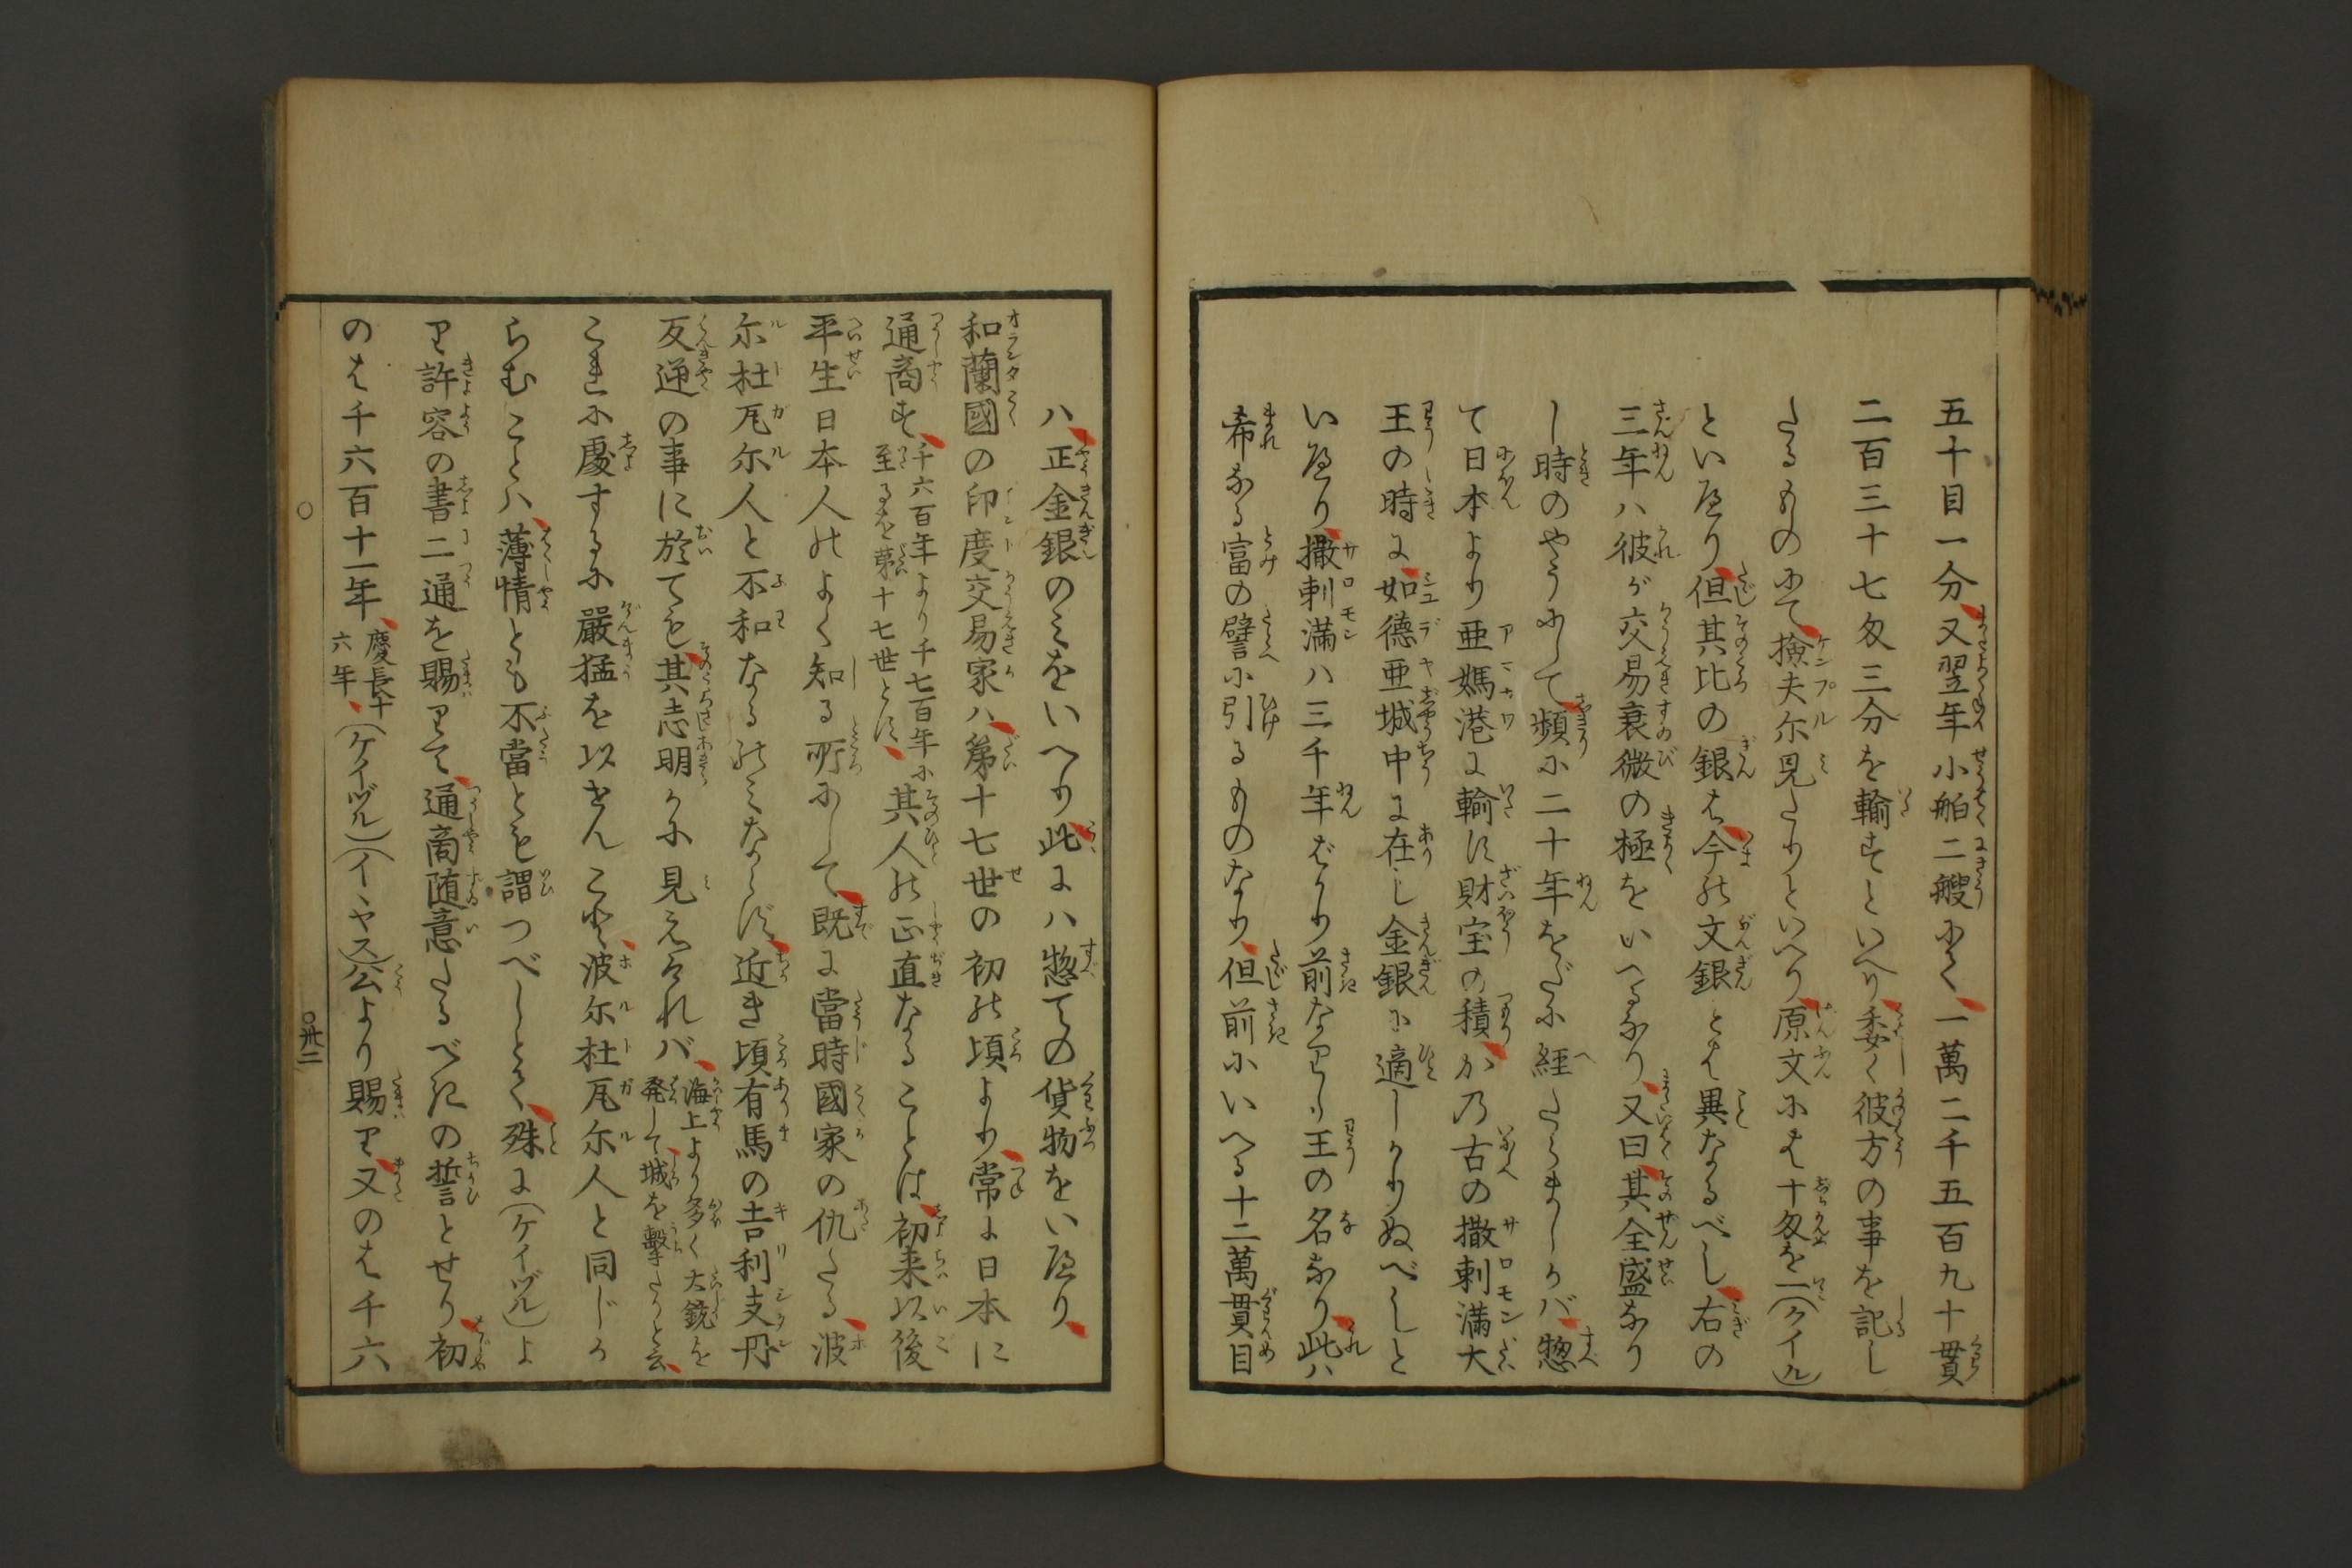 五十目一分、又翌年小舶二艘にて、一萬二千五百九十貫
二百三十七匁三分を輸すといへり、委く彼方の事を記し
たるものにて、撿夫尓見たりといへり、原文には十匁を一(タイル)
といへり、但其比の銀は、今の文銀とは異なるべし、右の
三年ハ彼が交易衰微の極をいへるなり、又曰其全盛なり
し時のやうにして、頻に二十年をだに経たらましかバ、惣
て日本より亜媽港に輸す財宝の積、か乃古の撒剌満大
王の時に、如德亜城中に在し金銀に適しかりぬべしと
いへり、撒剌満ハ三千年ばかり前なり王の名なり、此ハ
希なる富の譬に引るものなり、但前にいへる十二萬貫目
ハ、正金銀のミをいへり、此にハ惣ての貨物をいへり、
和蘭國の印度交易家ハ、第十七世の初の頃より、常に日本に
通商す、千六百年より千七百年に
至るを第十七世とす、
其人の正直なることは、初来以後
平生日本人のよく知る所にして、既に當時國家の仇たる、波
尓杜瓦尓人と不和なるのミならず、近き頃有馬の吉利支丹
反逆の事に於ても、其志明かに見えけれバ、
海上より多く大銃を
発して、城を擊たりと云、
これに處するに嚴猛を以せんこと、波尓杜瓦尓人と同じか
らむことハ、薄情とも不當とも謂つべしとて、殊に(ケイヅル)よ
り許容の書二通を賜りて、通商随意たるべきの誓とせり、初
のは千六百十一年、
慶長十
六年、
(ケイヅル)(イヽヤス)公より賜り、又のは千六
○
○卅二